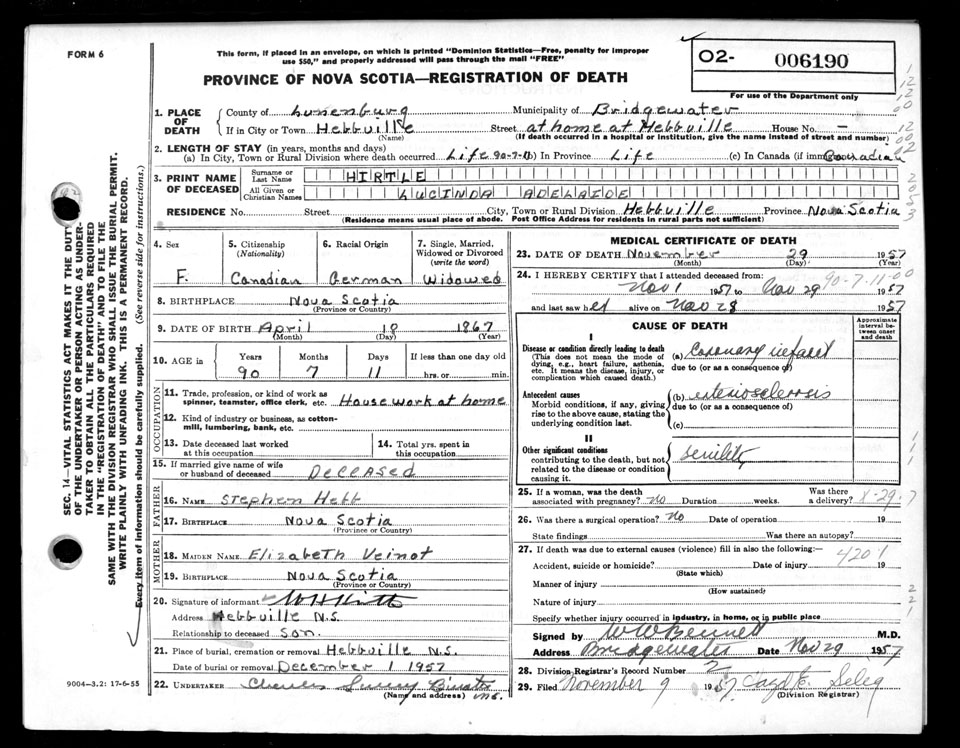 FORM 6
This form, if placed in an envelope, on which is printed "Dominion Statistics—Free, penalty for improper
use $50," and properly addressed will pass through the mail "FREE"
PROVINCE OF NOVA SCOTIA—REGISTRATION OF DEATH
O2- 006190
For use of the Department only
1. PLACE OF DEATH
County of Lunenburg Municipality of Bridgewater
If in City or Town Hebbville Street at home at Hebbville House No. –
(Name) (If death occurred in a hospital or institution, give the name instead of street and number)
2. LENGTH OF STAY (in years, months and days)
(a) In City, Town or Rural Division where death occurred Life 90-7-11 (b) In Province Life (c) In Canada (if immigrant) Canadian
3. PRINT NAME OF DECEASED
Surname or Last Name HIRTLE
All Given or Christian Names LUCINDA ADELAIDE
RESIDENCE No. Street City, Town or Rural Division Hebbville Province Nova Scotia
(Residence means usual place of abode. Post Office Address for residents in rural parts not sufficient)
4. Sex 5. Citizenship (Nationality) 6. Racial Origin 7. Single, Married, Widowed or Divorced (write the word)
F. Canadian German Widowed
8. BIRTHPLACE Nova Scotia
(Province or Country)
9. DATE OF BIRTH April 18 1867
(Month) (Day) (Year)
10. AGE IN Years Months Days If less than one day old
90 7 11 hrs. or min.
OCCUPATION
11. Trade, profession, or kind of work as spinner, teamster, office clerk, etc. Housework at home
12. Kind of industry or business, as cotton-mill, lumbering, bank, etc.
13. Date deceased last worked at this occupation
14. Total yrs. spent in this occupation
15. If married give name of wife or husband of deceased Deceased
FATHER
16. NAME Stephen Hebb
17. BIRTHPLACE Nova Scotia
(Province or Country)
MOTHER
18. MAIDEN NAME Elizabeth Veinot
19. BIRTHPLACE Nova Scotia
(Province or Country)
20. Signature of informant
Address Hebbville N.S.
Relationship to deceased Son.
21. Place of burial, cremation or removal Hebbville N.S.
Date of burial or removal December 1 1957
22. UNDERTAKER
(Name and address) N.S.
9004—3.2: 17-6-55
SEC. 14—VITAL STATISTICS ACT MAKES IT THE DUTY
OF THE UNDERTAKER OR PERSON ACTING AS UNDER-
TAKER TO OBTAIN ALL THE PARTICULARS REQUIRED
IN THE "REGISTRATION OF DEATH" AND TO FILE THE
SAME WITH THE DIVISION REGISTRAR WHO SHALL ISSUE THE BURIAL PERMIT.
WRITE PLAINLY WITH UNFADING INK. THIS IS A PERMANENT RECORD.
Every item of information should be carefully supplied. (See reverse side for instructions.)
MEDICAL CERTIFICATE OF DEATH
23. DATE OF DEATH November 29 1957
(Month) (Day) (Year)
24. I HEREBY CERTIFY that I attended deceased from: 90-7-11-00
Nov 1 1957 to Nov 29 1957
and last saw her alive on Nov 28 1957
CAUSE OF DEATH
Approximate interval between onset and death
I
Disease or condition directly leading to death
(This does not mean the mode of dying, e.g., heart failure, asthenia, etc. It means the disease, injury, or complication which caused death.)
(a) Coronary infarct
due to (or as a consequence of)
Antecedent causes
Morbid conditions, if any, giving rise to the above cause, stating the underlying condition last.
(b) arteriosclerosis
due to (or as a consequence of)
(c)
II
Other significant conditions
contributing to the death, but not related to the disease or condition causing it.
Senility
25. If a woman, was the death associated with pregnancy? no Duration weeks. Was there a delivery? X-29-7
26. Was there a surgical operation? No Date of operation 19
State findings Was there an autopsy?
27. If death was due to external causes (violence) fill in also the following:—
4201
Accident, suicide or homicide? Date of injury 19
(State which)
Manner of injury
(How sustained)
Nature of injury
Specify whether injury occurred in industry, in home, or in public place
Signed by W W Bennett M.D.
Address Bridgewater Date Nov 29 1957
28. Division Registrar's Record Number 2
29. Filed November 9 1957
(Division Registrar)